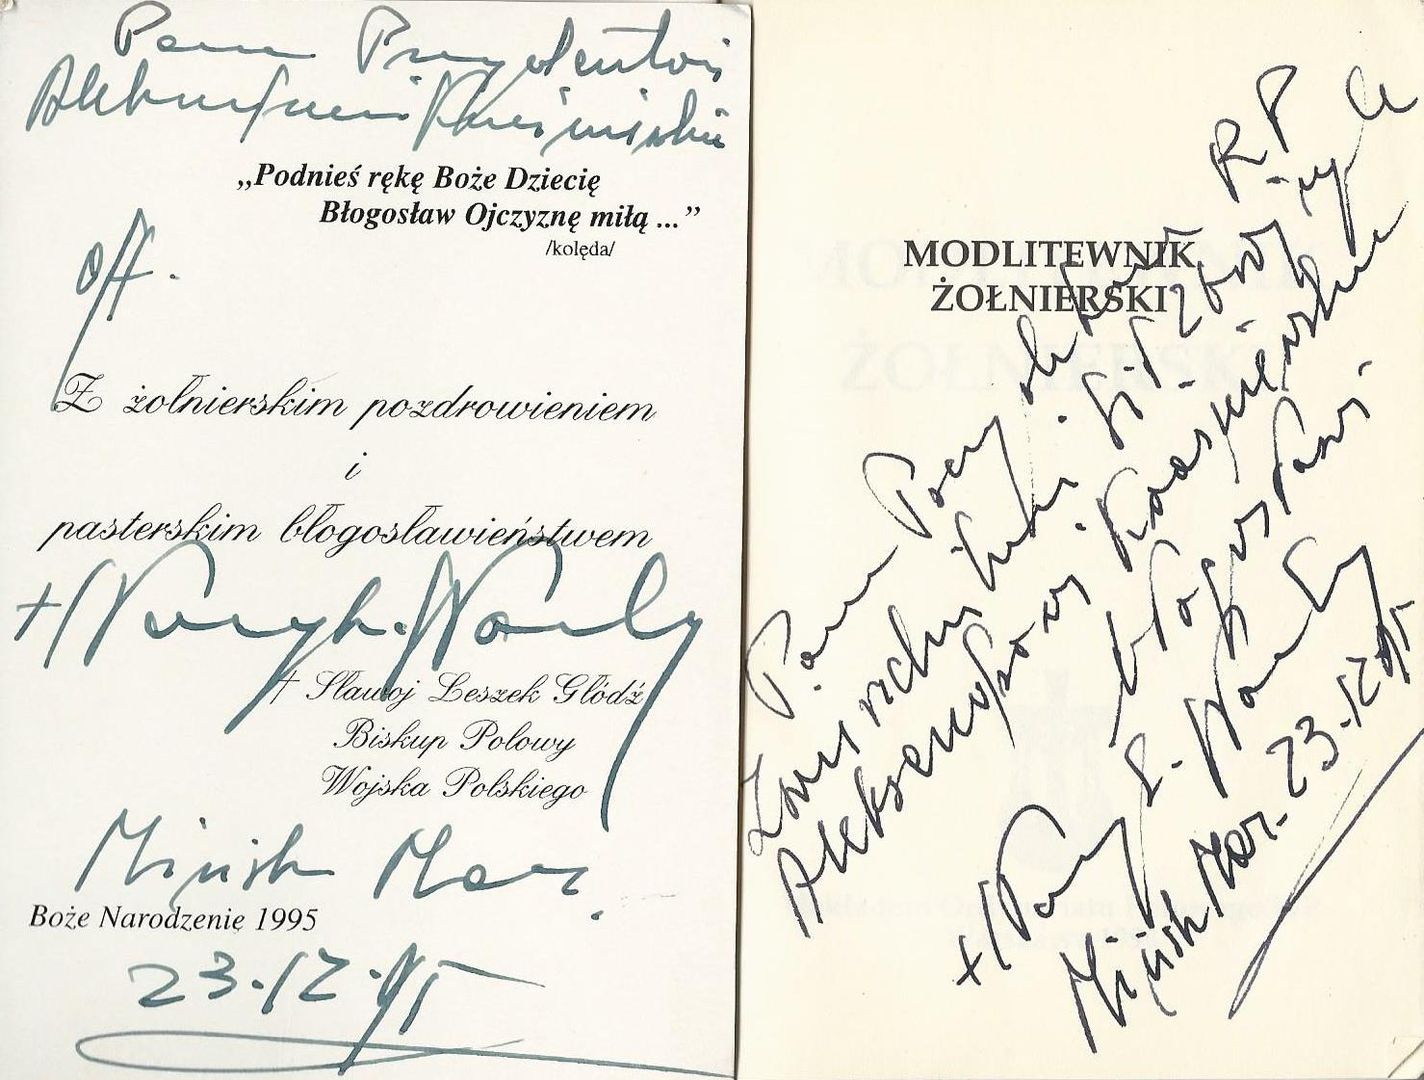 Panu Prezydentowi
Aleksandrowi Kwaśniewskiemu
„Podnieś rękę Boże Dziecię
Błogosław Ojczyznę miłą ...”
/kolęda/
off.
Z żołnierskim pozdrowieniem
i
pasterskim błogosławieństwem
+
† Sławoj Leszek Głódź
Biskup Polowy
Wojska Polskiego
Mińsk Maz.
Boże Narodzenie 1995
23.12.95
MODLITEWNIK
ŻOŁNIERSKI
Panu Prezydentowi RP
Zwierzchnikowi Sił Zbrojnych
Aleksandrowi Kwaśniewskiemu
błogosławi
+
Mińsk Maz. 23.12.95